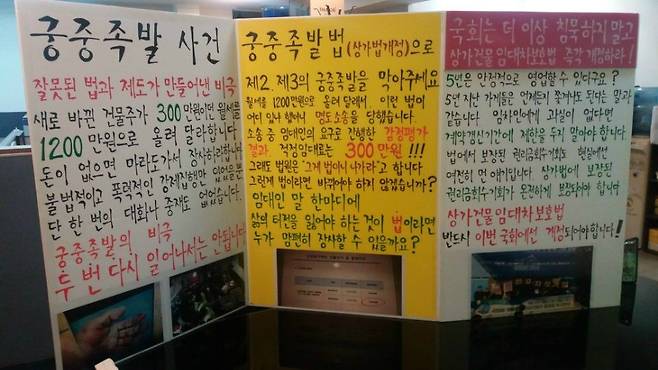 궁중족발 사건
잘못된 법과 제도가 만들어낸 비극
새로 바뀐 건물주가 300만원이던 월세를
1200만원으로 올려 달라합니다
돈이 없으면 마라도가서 장사하라합니다
불법적이고 폭력적인 강제집행만 있었을뿐
단 한 번의 대화나 중재도 없었습니다.
궁중족발의 비극
두 번 다시 일어나서는 안됩니다
궁중족발법 (상가법개정)으로
제2. 제3의 궁중족발을 막아주세요
월세를 1200만원으로 올려 달래서, 이런 법이
어디 있냐 했더니 명도소송을 당했습니다.
소송 중 임대인의 요구로 진행한 감정평가
결과 적정임대료는 300만원 !!!
그래도 법원은 "그게 법이니 나가라"고 합니다
그런게 법이라면 바뀌어야 하지 않겠습니까?
임대인 말 한마디에
삶의 터전을 잃어야 하는 것이 법이라면
누가 맘편히 장사할 수 있을까요?
국회는 더 이상 침묵하지 말고
상가건물임대차보호법 즉각 개정하라!
5년은 안정적으로 영업할 수 있다구요?
5년 지난 가게들은 언제든지 쫓겨나도 된다는 말과
같습니다 임차인에게 과실이 없다면
계약갱신기간에 제한을 두지 말아야 합니다
법에서 보장된 권리금회수기회도 현실에선
여전히 먼 얘기입니다 상가법에 보장된
권리금회수기회가 온전하게 보장되어야 합니다
상가건물임대차보호법
반드시 이번 국회에선 개정되어야합니다!